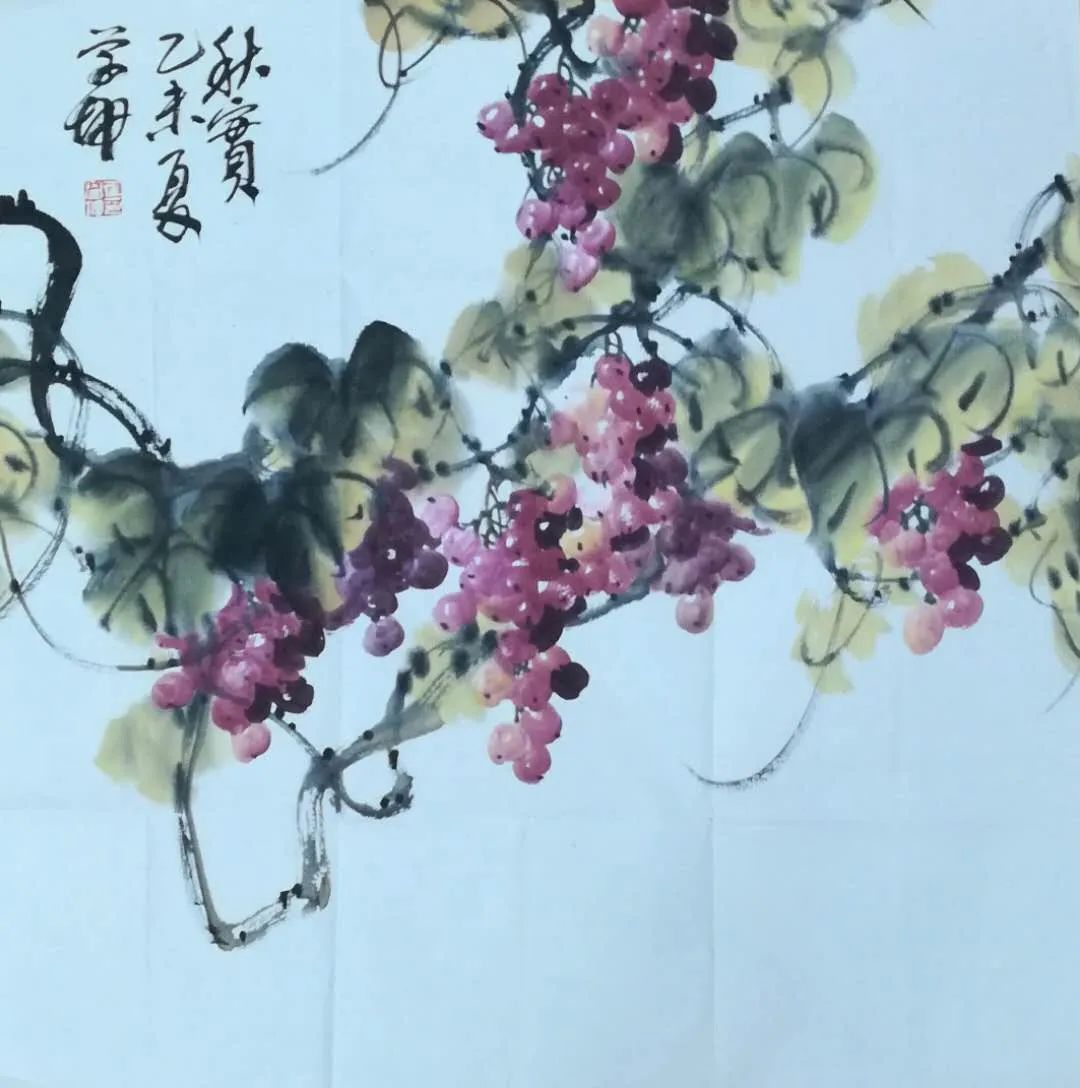 秋實
乙未夏
学坤